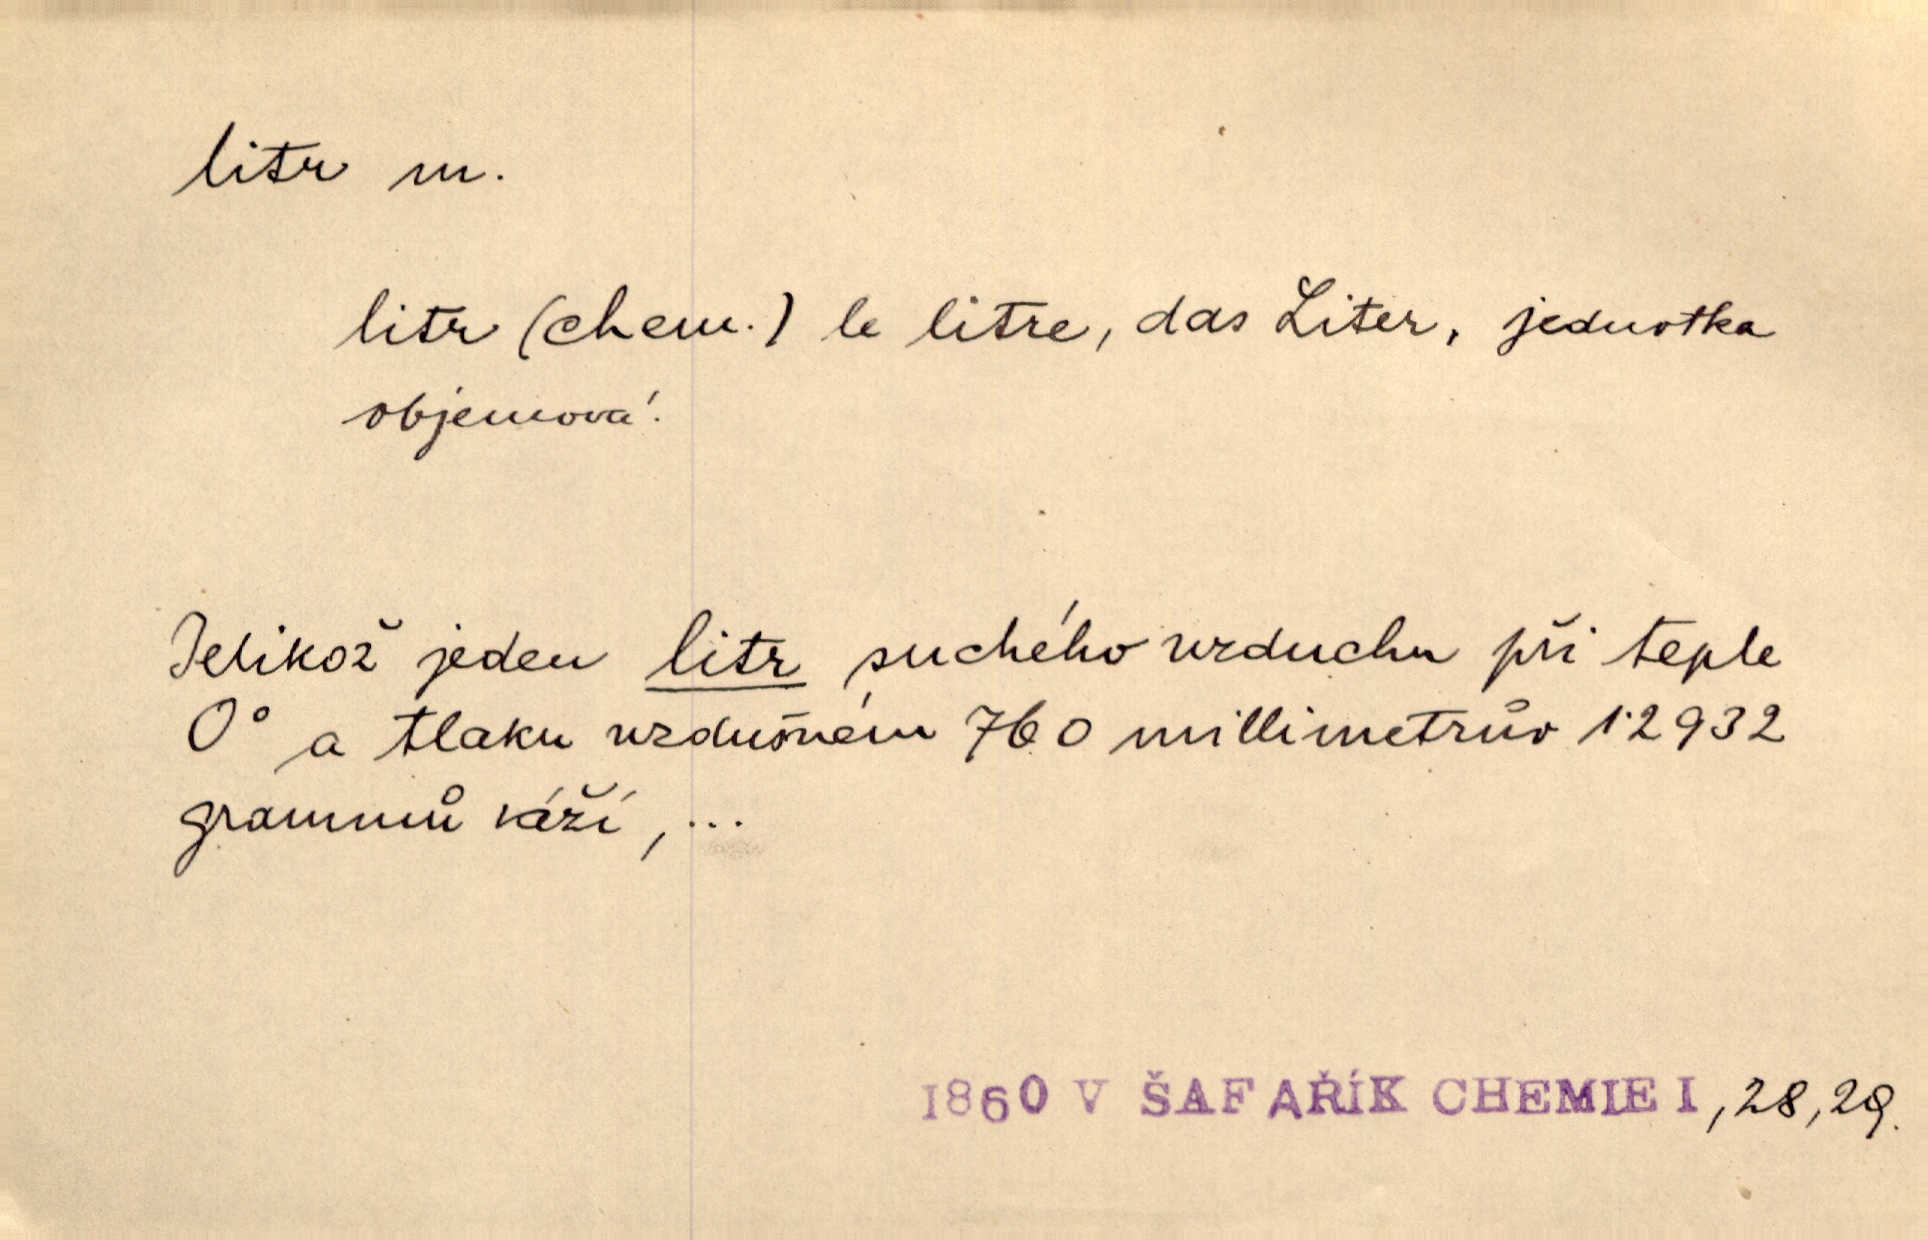 litr m.
litr (chem.) le litre, das Liter, jednotka
objemová.
Jelikož jeden litr suchého vzduchu při teple
0° a tlaku vzdušném 760 millimetrův 1·2932
grammů váží, ...
1860 V ŠAFAŘÍK CHEMIE I, 28, 29.